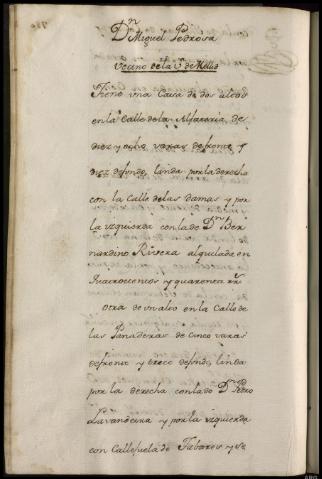 Dn Miguel Pedrosa
Vecino de la Va de Mellid
Tiene una Casa de dos altos
en la Calle de la Alfareria, de
diez y ocho varas de frente y
diez de fondo, linda por la derecha
con la Calle de las Damas y por
la izquierda con la de Dn Ber
nardino Rivera alquilada en
Quatrocientos y quarenta rrs
Otra de un alto en la Calle de
las Panaderas de cinco varas
de frente y trece de fondo, linda
por la derecha con la de Dn Pedro
Lavandeira y por la izquierda
con Callejuela de Tabares y se